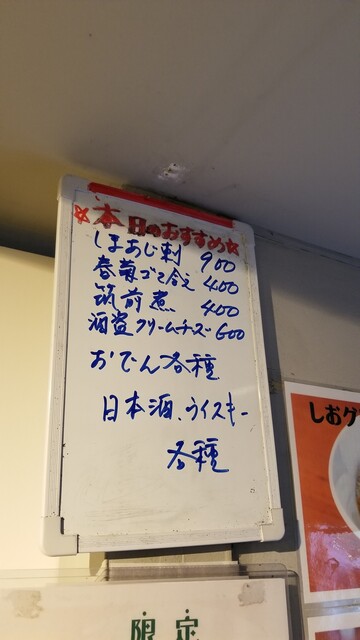 ☆本日のおすすめ☆
しまあじ刺 900
春菊ゴマ合え 400
筑前煮 400
酒盗クリームチーズ 600
おでん各種
日本酒、ウイスキー
各種
しおグ
限定